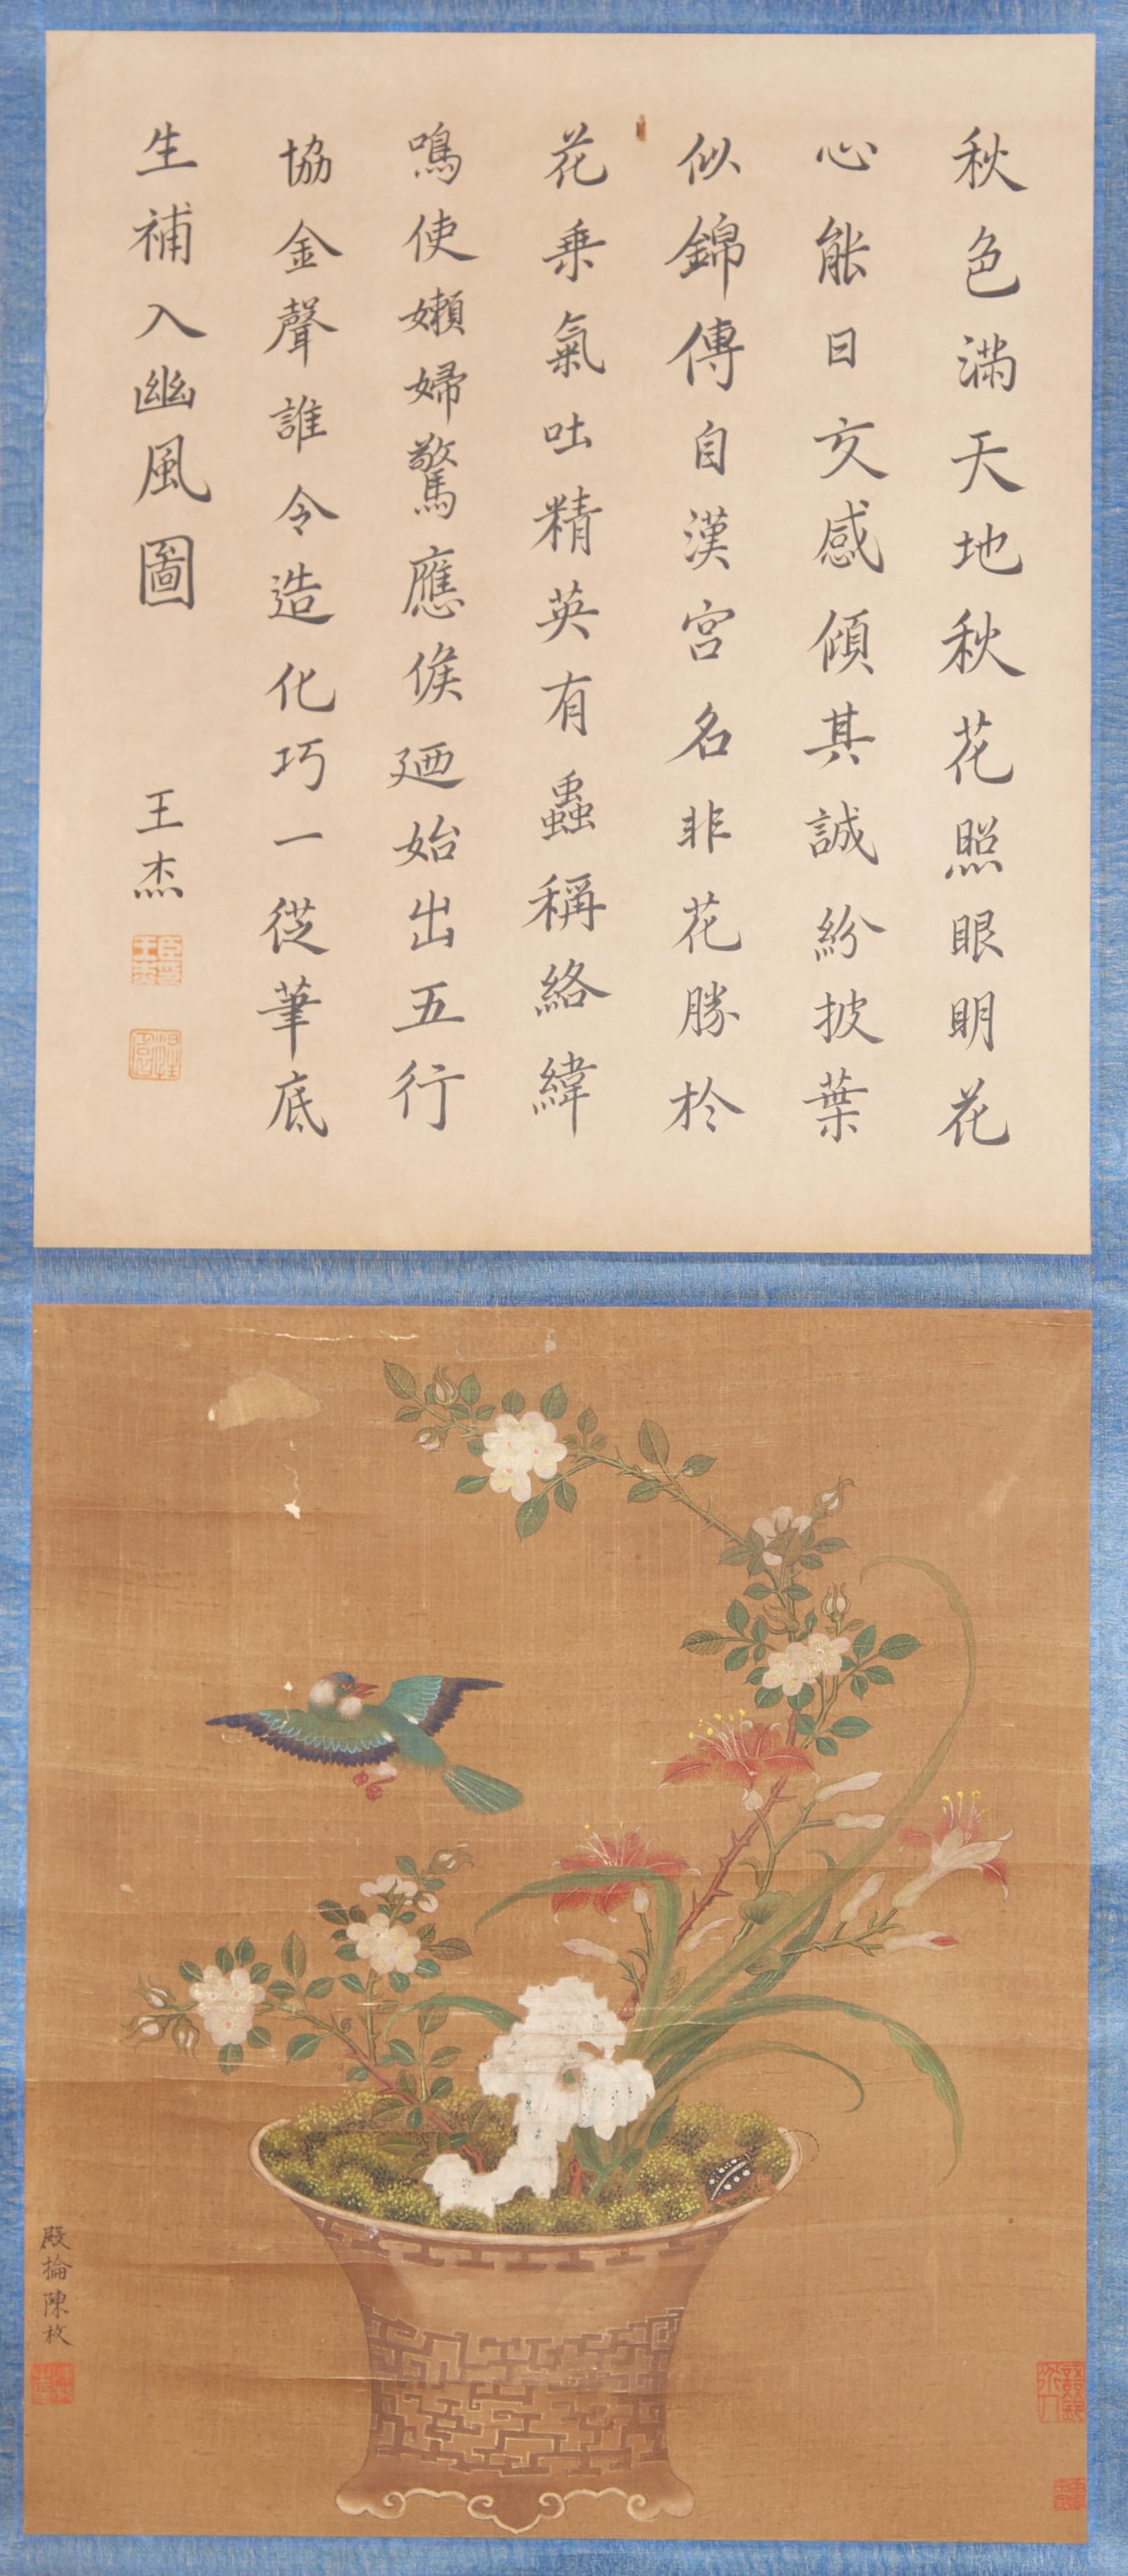 秋色滿天地秋花照眼明花
心能日交感傾其誠紛披葉
似錦傳自漢宮名非花勝於
花乗氣吐精英有蟲稱絡緯
鳴使嬾婦驚應候廼始出五行
協金聲誰令造化巧一從筆底
生補入豳風圖
王杰
殿掄陳枚